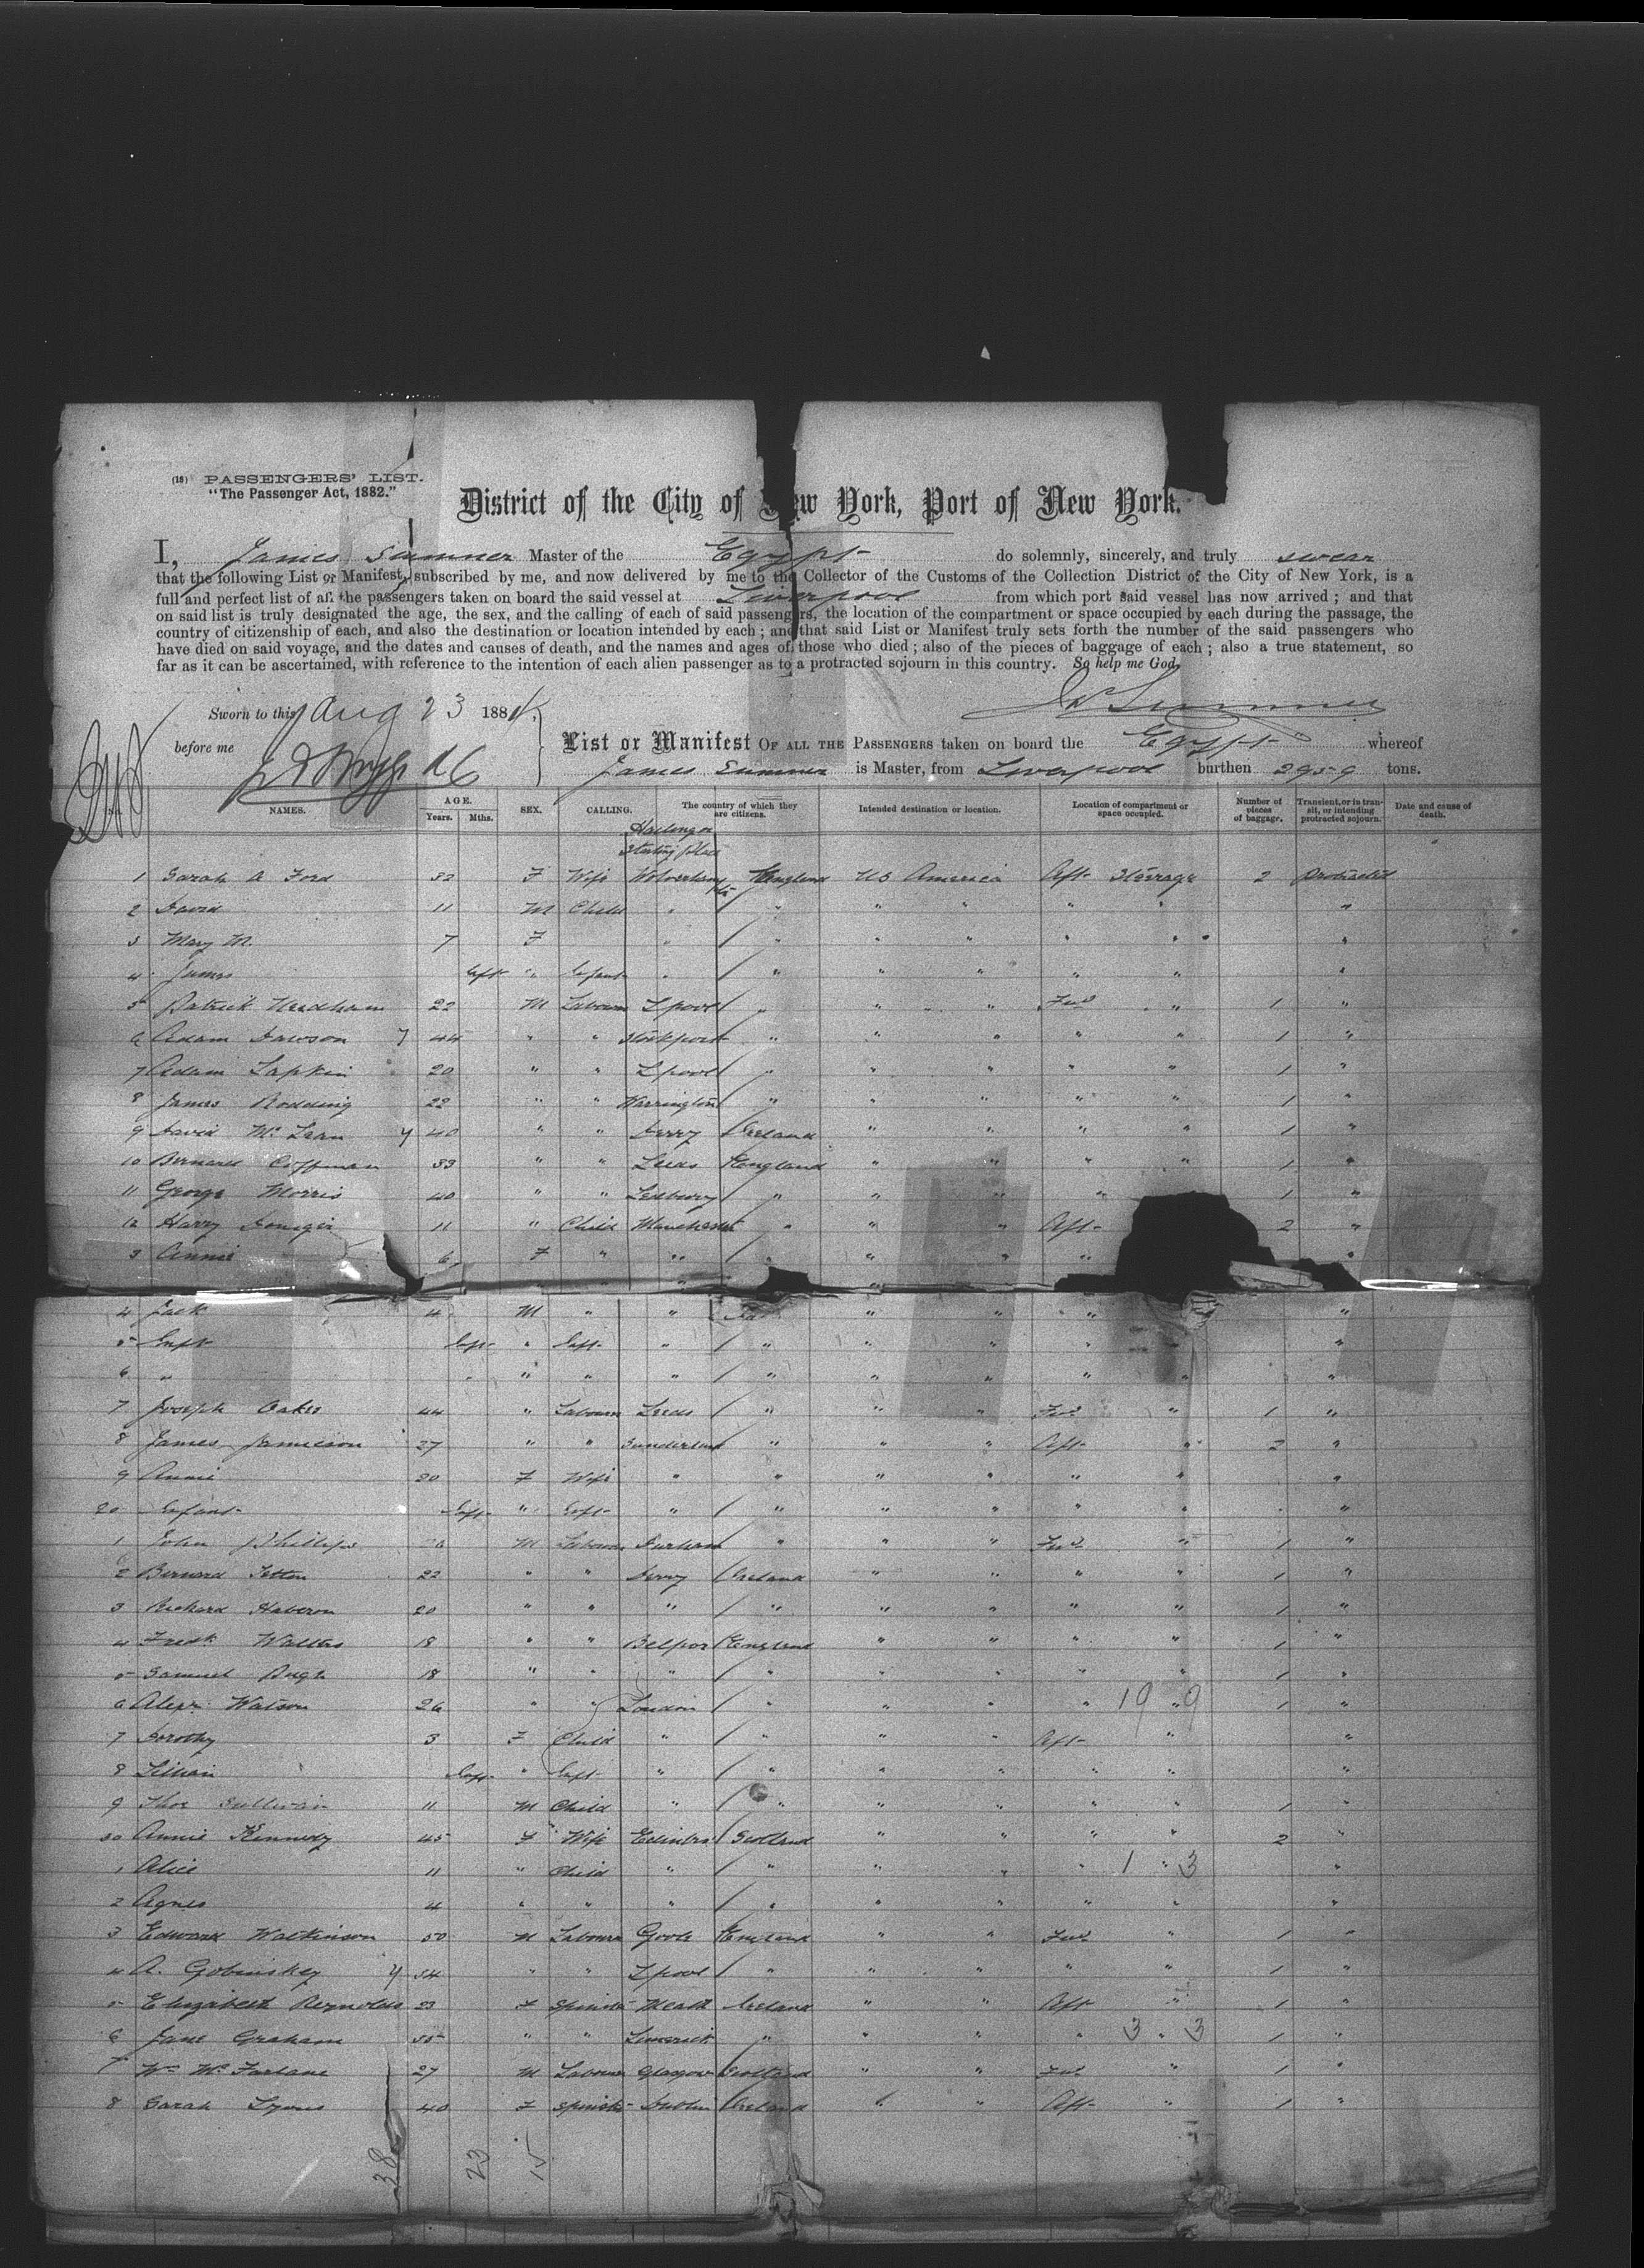 (18) PASSENGERS' LIST.
"The Passenger Act, 1882."
District of the City of New York, Port of New York.
I, James Sumner Master of the Egypt do solemnly, sincerely, and truly swear
that the following List or Manifest, subscribed by me, and now delivered by me to the Collector of the Customs of the Collection District of the City of New York, is a
full and perfect list of all the passengers taken on board the said vessel at Liverpool from which port said vessel has now arrived; and that
on said list is truly designated the age, the sex, and the calling of each of said passengers, the location of the compartment or space occupied by each during the passage, the
country of citizenship of each, and also the destination or location intended by each; and that said List or Manifest truly sets forth the number of the said passengers who
have died on said voyage, and the dates and causes of death, and the names and ages of those who died; also of the pieces of baggage of each; also a true statement, so
far as it can be ascertained, with reference to the intention of each alien passenger as to a protracted sojourn in this country. So help me God,
Sworn to this Aug 23 1884 Sumner
before me
List or Manifest OF ALL THE PASSENGERS taken on board the Egypt whereof
James Sumner is Master, from Liverpool burthen 2959 tons.
NAMES. AGE. Years. Mths. SEX. CALLING. The country of which they are citizens. Intended destination or location. Location of compartment or space occupied. Number of pieces of baggage. Transient, or in transit, or intending protracted sojourn. Date and cause of death.
Hailing or Starting place
1 Sarah A Ford 32 F Wife Wolverhampton England US America Aft Steerage 2 Protracted
2 David 11 M Child " " " " " " "
3 Mary M. 7 F " " " " " " "
4 James Inft " Infant " " " " " " "
5 Patrick Needham 22 M Labourer L'pool " " " Fwd " 1 "
6 Adam Dawson 44 " " Stockport " " " " " 1 "
7 Adam Lapkin 20 " " L'pool " " " " " 1 "
8 James Rodding 22 " " Warrington " " " " " 1 "
9 David McLean y 40 " " Derry Ireland " " " " 1 "
10 Bernard Coffman 33 " " Leeds England " " " " 1 "
11 George Morris 40 " " Ledbury " " " " 1 "
12 Harry 11 " Child Manchester " " " Aft 2 "
3 Annie 6 F " " " " " " "
4 Jack 4 M " " " " " "
5 Inft Inft " Inft " " " " " " "
6 " " " " " " " " " " "
7 Joseph Oakes 44 " Labourer Leeds " " " Fwd " 1 "
8 James Jamieson 27 " " Sunderland " " " Aft " 2 "
9 Annie 20 F Wife " " " " " " "
20 Infant Inft " Inft " " " " " " "
1 John Phillips M Labourer Durham " " " Fwd " 1 "
2 Bernard 22 " " Derry Ireland " " " " 1 "
3 Richard 20 " " " " " " " " 1 "
4 Fredk Walters 18 " " Belper England " " " " 1 "
5 Samuel Pugh 18 " " " " " " " " 1 "
6 Alexr Watson 26 " " London " " " " 19 " 9 1 "
7 Dorothy 3 F Child " " " " Aft " "
8 Lilian Inft " Inft " " " " " " "
9 Thos Sullivan 11 M Child " " " " " " 1 "
30 Annie Kennedy 45 F Wife Edinbro Scotland " " " " 2 "
1 Alice 11 " Child " " " " " 1 " 3 "
2 Agnes 4 " " " " " " " " "
3 Edward Watkinson 50 M Labourer Goole England " " Fwd " 1 "
4 A. Gobinskey y 54 " " L'pool " " " " " 1 "
5 Elizabeth Reynolds 23 F Spinster Meath Ireland " " Aft " 1 "
6 Jane Graham 55 " " Limerick " " " " 3 " 3 1 "
7 Wm McFarlane 27 M Labourer Glasgow Scotland " " Fwd " 1 "
8 Sarah Lyons 40 F Spinster Dublin Ireland " " Aft " 1 "
38 23 15